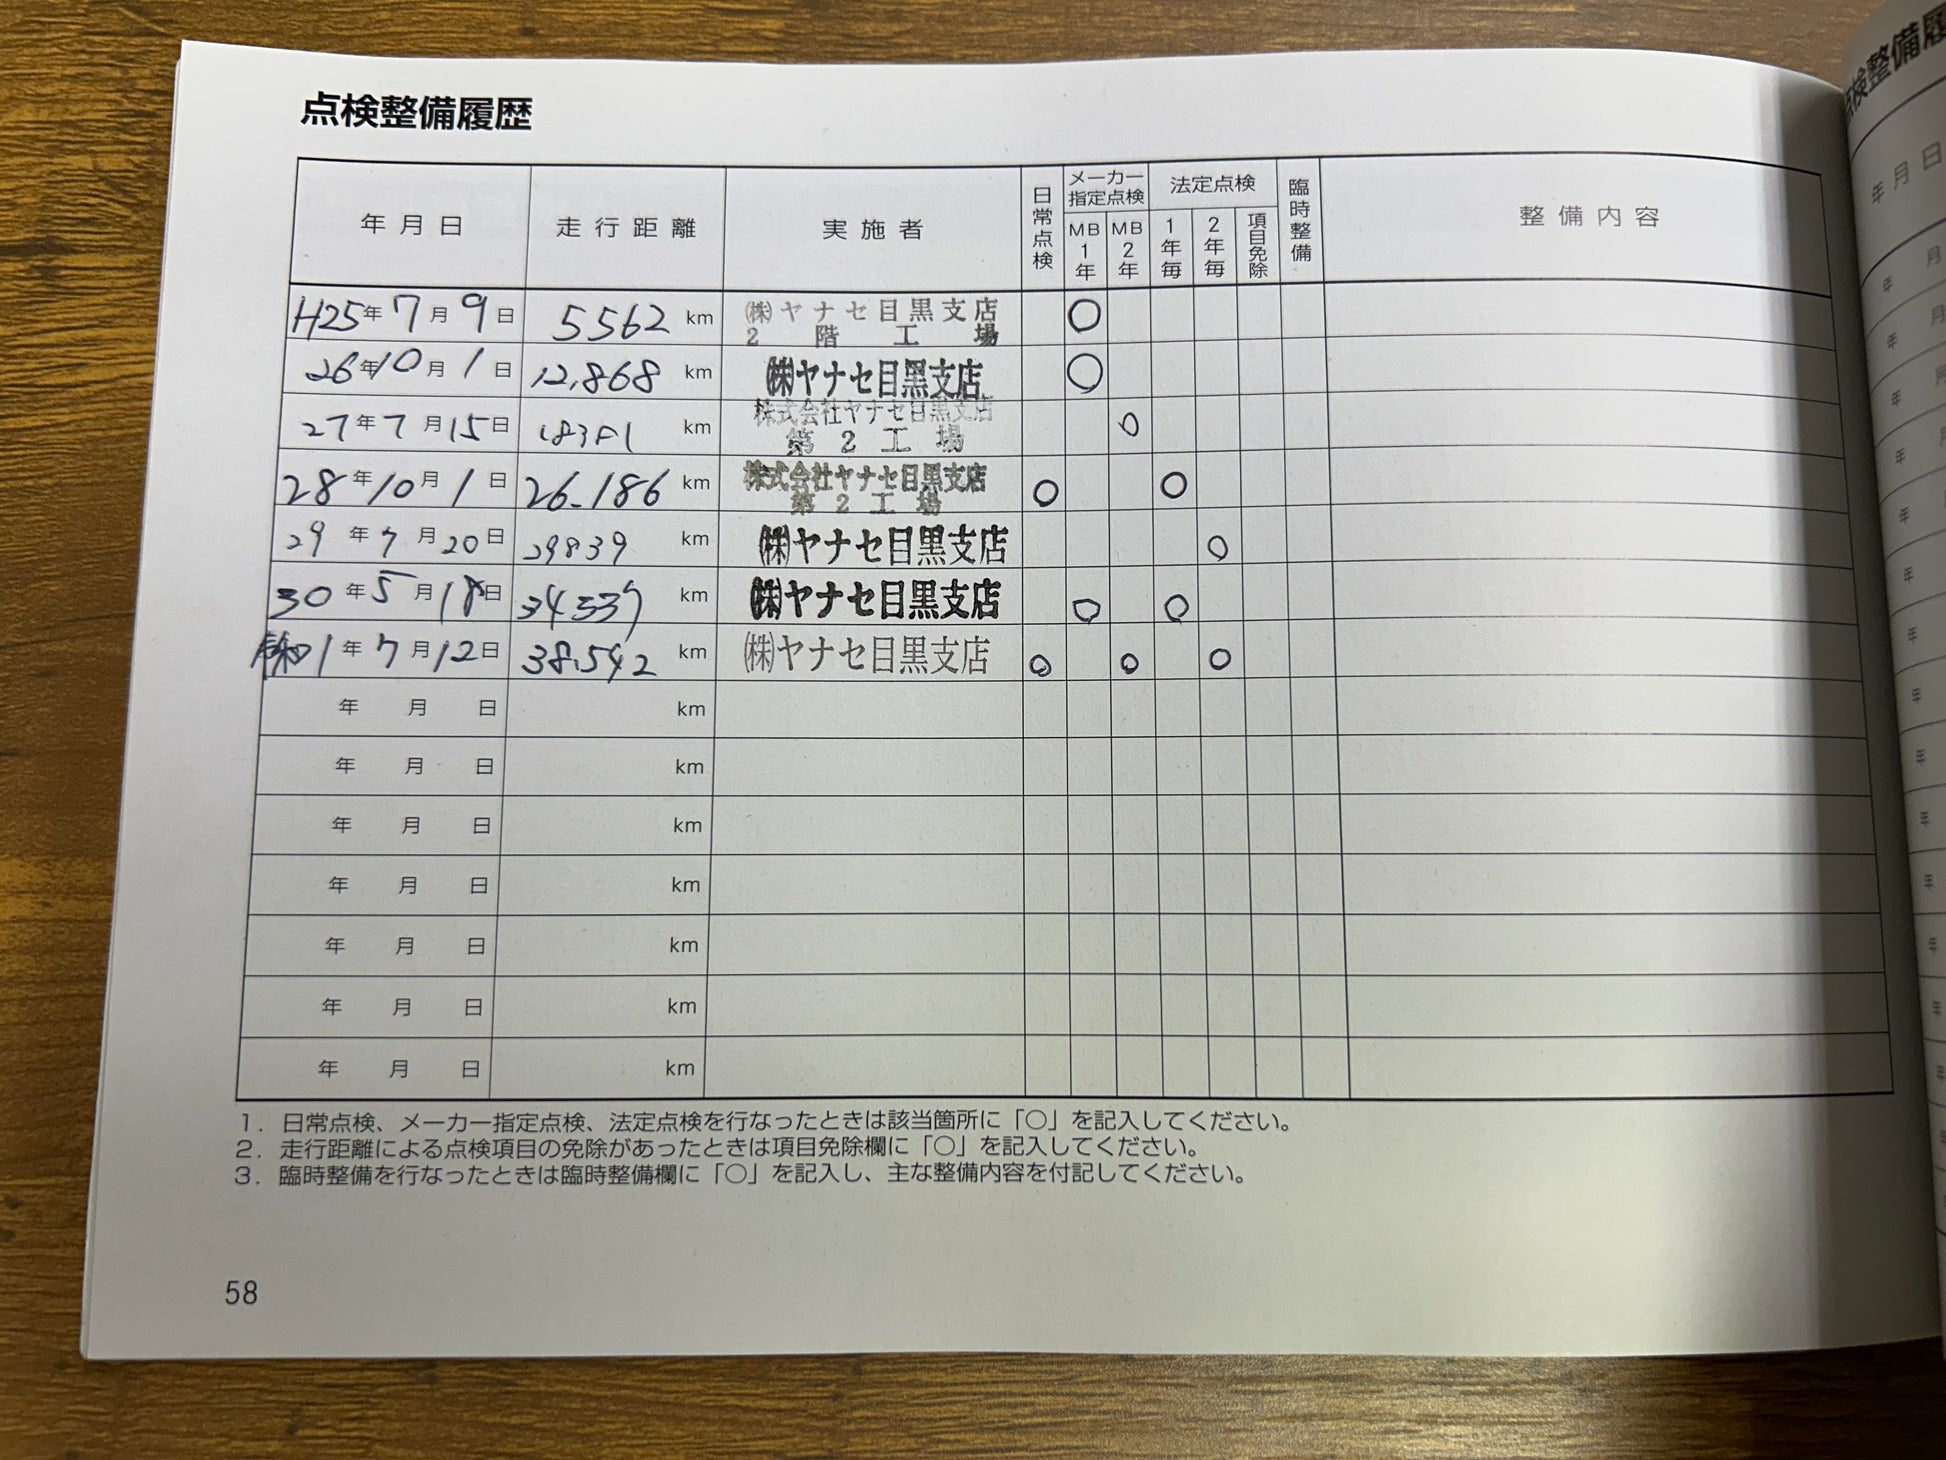 点検整備履歴
年月日 走行距離 実施者 日常点検 メーカー指定点検 MB1年 MB2年 法定点検 1年毎 2年毎 項目免除 臨時整備 整備内容
H25年7月9日 5562 km ㈱ヤナセ目黒支店 ○
2階工場
26年10月1日 12,868 km ㈱ヤナセ目黒支店 ○
27年7月15日 km 株式会社ヤナセ目黒支店 ○
第2工場
28年10月1日 26.186 km 株式会社ヤナセ目黒支店 ○ ○
第2工場
29年7月20日 29839 km ㈱ヤナセ目黒支店 ○
30年5月18日 34337 km ㈱ヤナセ目黒支店 ○ ○
令和1年7月12日 38.542 km ㈱ヤナセ目黒支店 ○ ○ ○
年 月 日 km
年 月 日 km
年 月 日 km
年 月 日 km
年 月 日 km
年 月 日 km
年 月 日 km
1. 日常点検、メーカー指定点検、法定点検を行なったときは該当箇所に「○」を記入してください。
2. 走行距離による点検項目の免除があったときは項目免除欄に「○」を記入してください。
3. 臨時整備を行なったときは臨時整備欄に「○」を記入し、主な整備内容を付記してください。
58
点検整備履
年月日
年 月
年 月
年 月
年 月
年
年
年
年
年
年
年
年
年
年